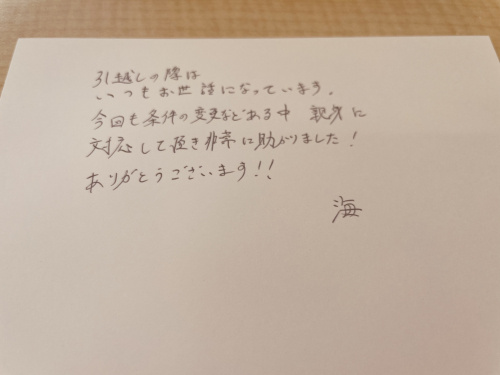 引越しの際は
いつもお世話になっています。
今回も条件の変更などある中 親身に
対応して頂き非常に助かりました!
ありがとうございます!!
海